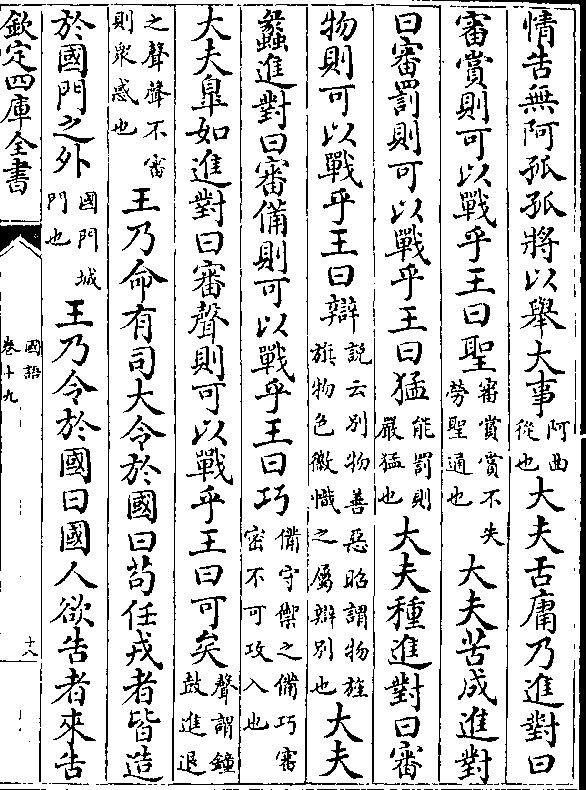 情告無阿孤孤將以舉大事阿曲從也大夫舌庸乃進對曰
審賞則可以戰乎王曰聖審賞賞不失勞聖通也大夫苦成進對
曰審罰則可以戰乎王曰猛能罰則嚴猛也大夫種進對曰審
物則可以戰乎王曰辯說云別物善惡昭謂物旌旗物色徽幟之屬辯別也大夫
蠡進對曰審備則可以戰乎王曰巧備守禦之備巧審密不可攻入也
大夫皐如進對曰審聲則可以戰乎王曰可矣聲謂鐘鼓進退
之聲聲不審則衆惑也王乃命有司大令於國曰苟任戎者皆造
於國門之外國門城門也王乃令於國曰國人欲告者來告
欽定四庫全書
國語
卷十九
十八